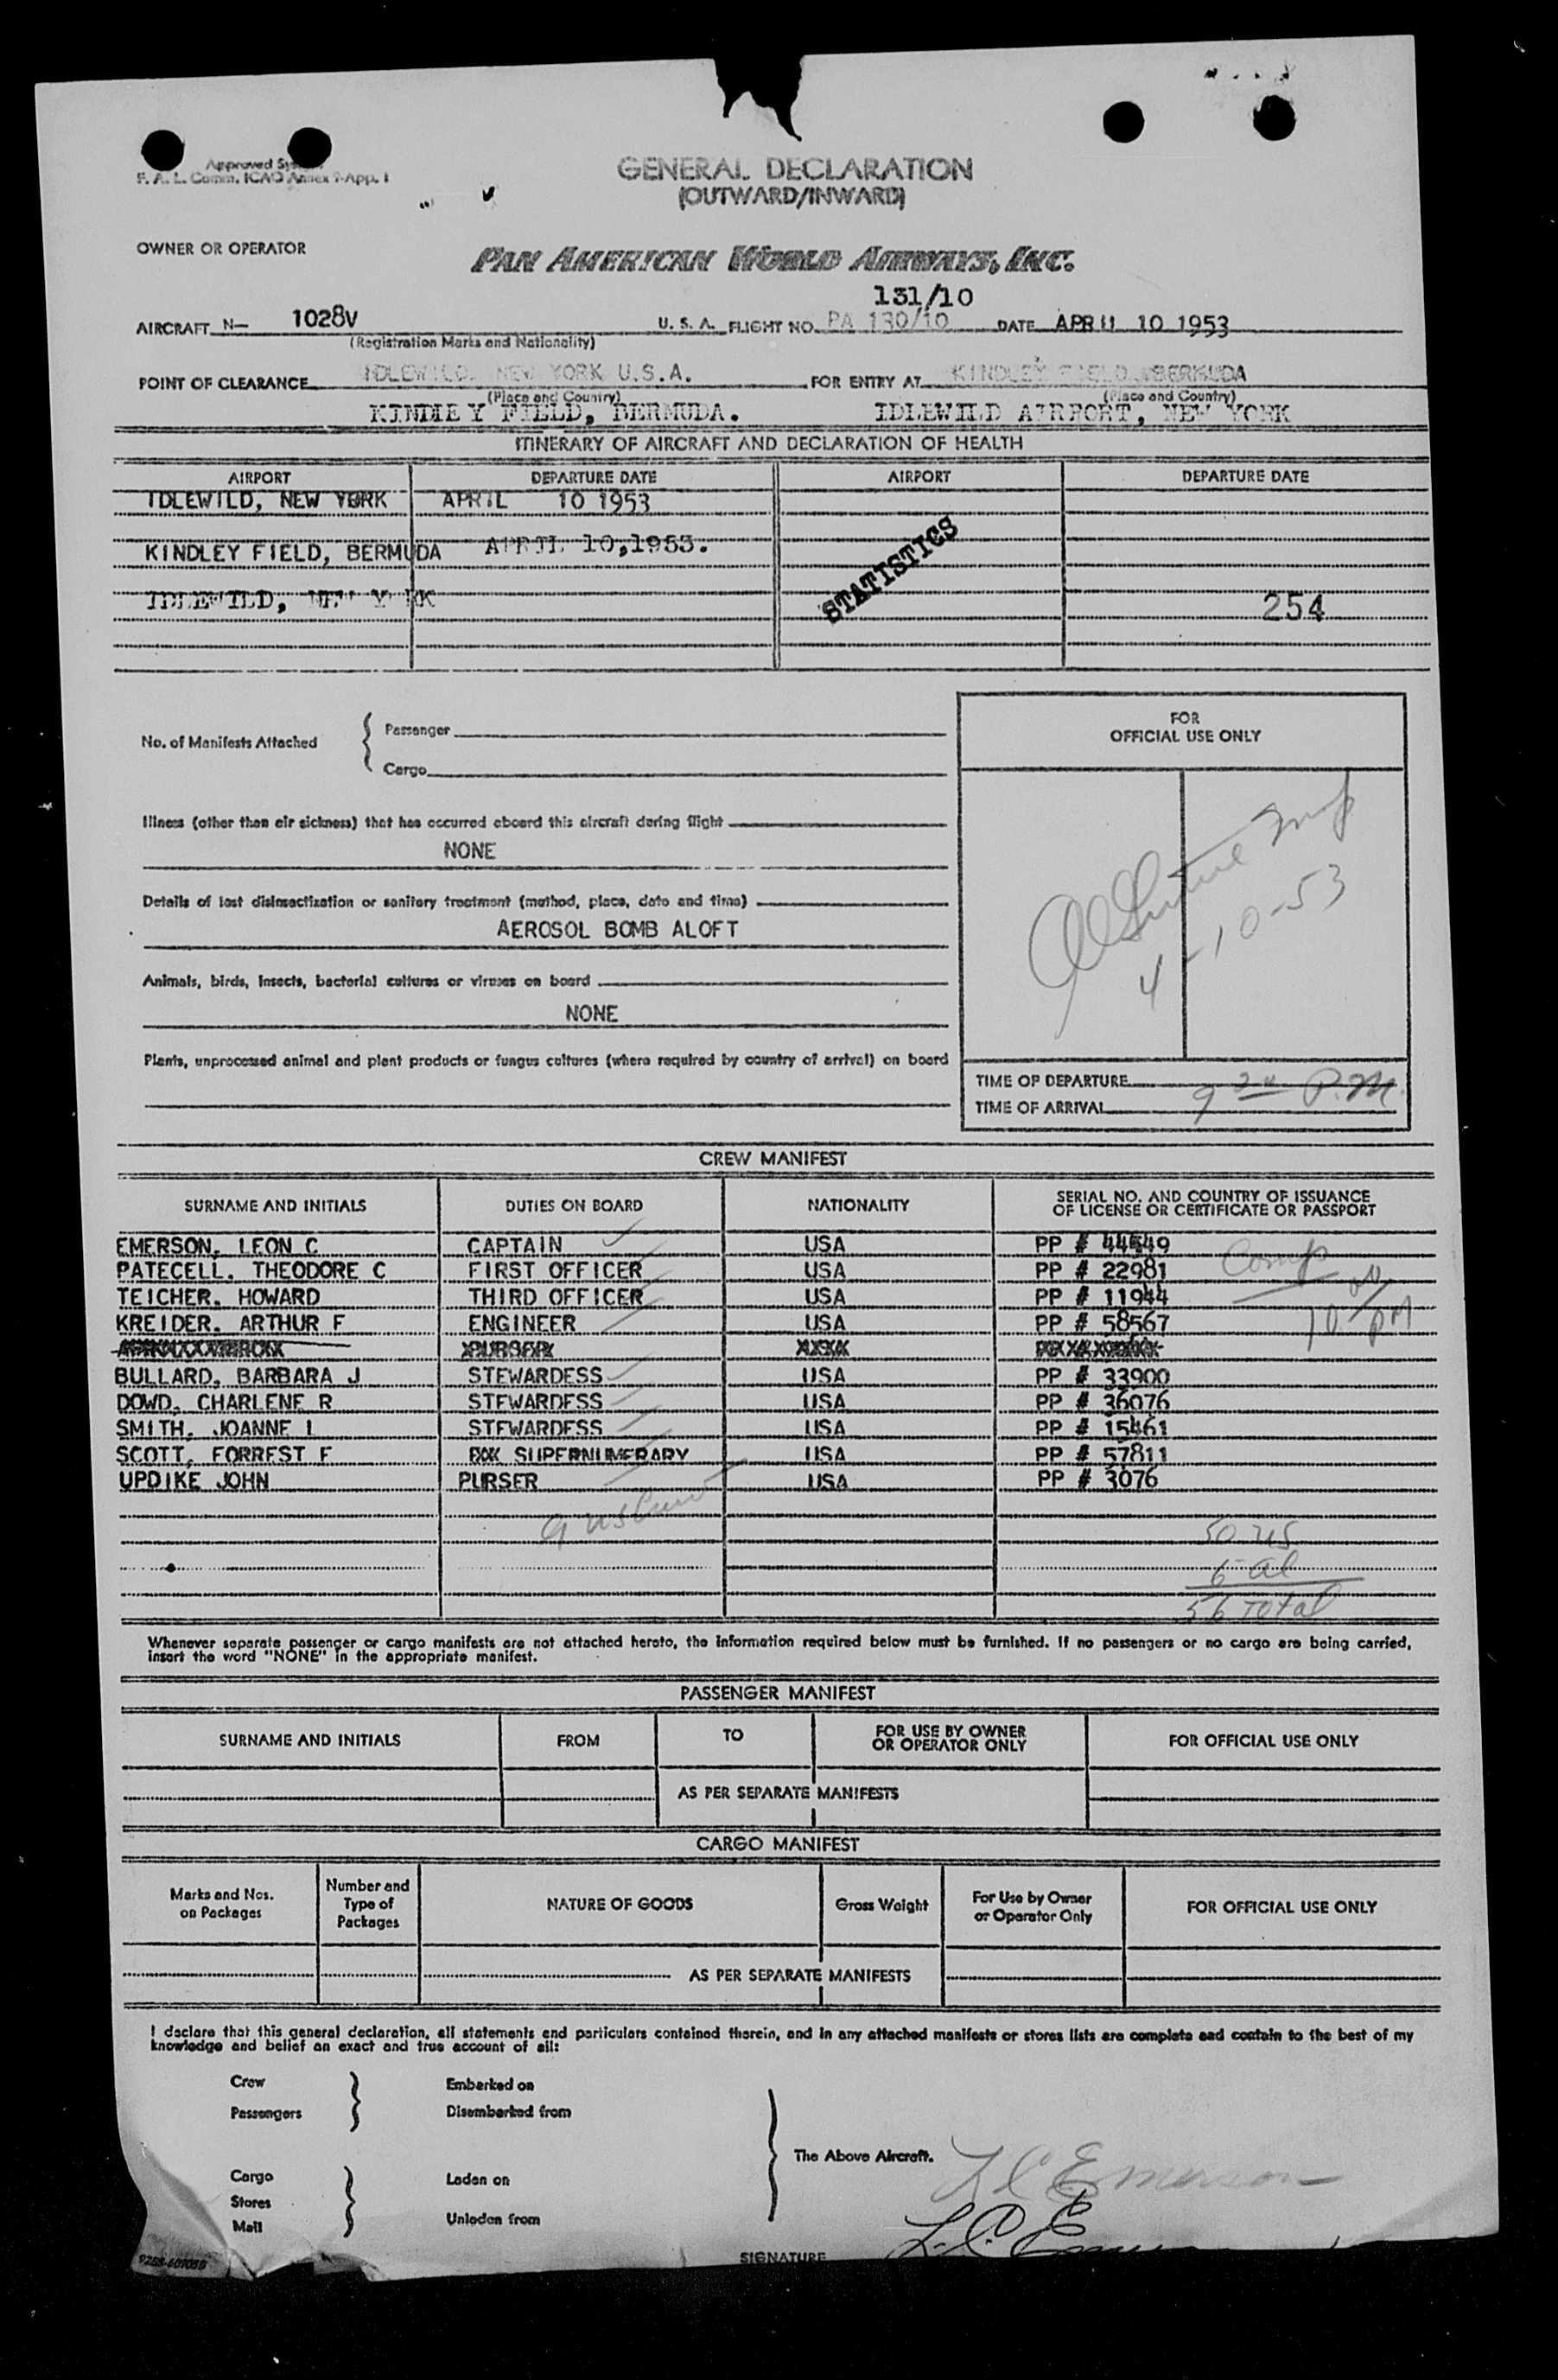 Approved
F. A. L. Comm. ICAO Annex 9-App. 1
GENERAL DECLARATION
(OUTWARD/INWARD)
OWNER OR OPERATOR
PAN AMERICAN WORLD AIRWAYS, INC.
131/10
AIRCRAFT N- 1028V U. S. A. FLIGHT NO. PA 130/10 DATE APRIL 10 1953
(Registration Marks and Nationality)
POINT OF CLEARANCE IDLEWILD, NEW YORK U.S.A. FOR ENTRY AT KINDLEY FIELD, BERMUDA
(Place and Country) (Place and Country)
KINDLEY FIELD, BERMUDA. IDLEWILD AIRPORT, NEW YORK
ITINERARY OF AIRCRAFT AND DECLARATION OF HEALTH
AIRPORT DEPARTURE DATE AIRPORT DEPARTURE DATE
IDLEWILD, NEW YORK APRIL 10 1953
KINDLEY FIELD, BERMUDA APRIL 10, 1953.
STATISTICS
IDLEWILD, NEW YORK
254
FOR
OFFICIAL USE ONLY
No. of Manifests Attached { Passenger
Cargo
Illness (other than air sickness) that has occurred aboard this aircraft during flight
NONE
Details of last disinsectization or sanitary treatment (method, place, date and time)
AEROSOL BOMB ALOFT
4-10-53
Animals, birds, insects, bacterial cultures or viruses on board
NONE
Plants, unprocessed animal and plant products or fungus cultures (where required by country of arrival) on board
TIME OF DEPARTURE
TIME OF ARRIVAL 9 20 P.M.
CREW MANIFEST
SURNAME AND INITIALS DUTIES ON BOARD NATIONALITY SERIAL NO. AND COUNTRY OF ISSUANCE
OF LICENSE OR CERTIFICATE OR PASSPORT
EMERSON, LEON C CAPTAIN USA PP # 44549
PATECELL, THEODORE C FIRST OFFICER USA PP # 22981 Comp
TEICHER, HOWARD THIRD OFFICER USA PP # 11944
KREIDER, ARTHUR F ENGINEER USA PP # 58567 10 00 PM
PURSER
BULLARD, BARBARA J STEWARDESS USA PP # 33900
DOWD, CHARLENE R STEWARDESS USA PP # 36076
SMITH, JOANNE L STEWARDESS USA PP # 15461
SCOTT, FORREST F SUPERNUMERARY USA PP # 57811
UPDIKE JOHN PURSER USA PP # 3076
9 us
50 us
6 al
56 Total
Whenever separate passenger or cargo manifests are not attached hereto, the information required below must be furnished. If no passengers or no cargo are being carried,
insert the word "NONE" in the appropriate manifest.
PASSENGER MANIFEST
SURNAME AND INITIALS FROM TO FOR USE BY OWNER
OR OPERATOR ONLY FOR OFFICIAL USE ONLY
AS PER SEPARATE MANIFESTS
CARGO MANIFEST
Marks and Nos.
on Packages
Number and
Type of
Packages
NATURE OF GOODS
Gross Weight
For Use by Owner
or Operator Only
FOR OFFICIAL USE ONLY
AS PER SEPARATE MANIFESTS
I declare that this general declaration, all statements and particulars contained therein, and in any attached manifests or stores lists are complete and contain to the best of my
knowledge and belief an exact and true account of all:
Crew Embarked on
Passengers Disembarked from
The Above Aircraft. L C Emerson
Cargo Laden on
Stores
Mail Unladen from
SIGNATURE L. C. Emerson